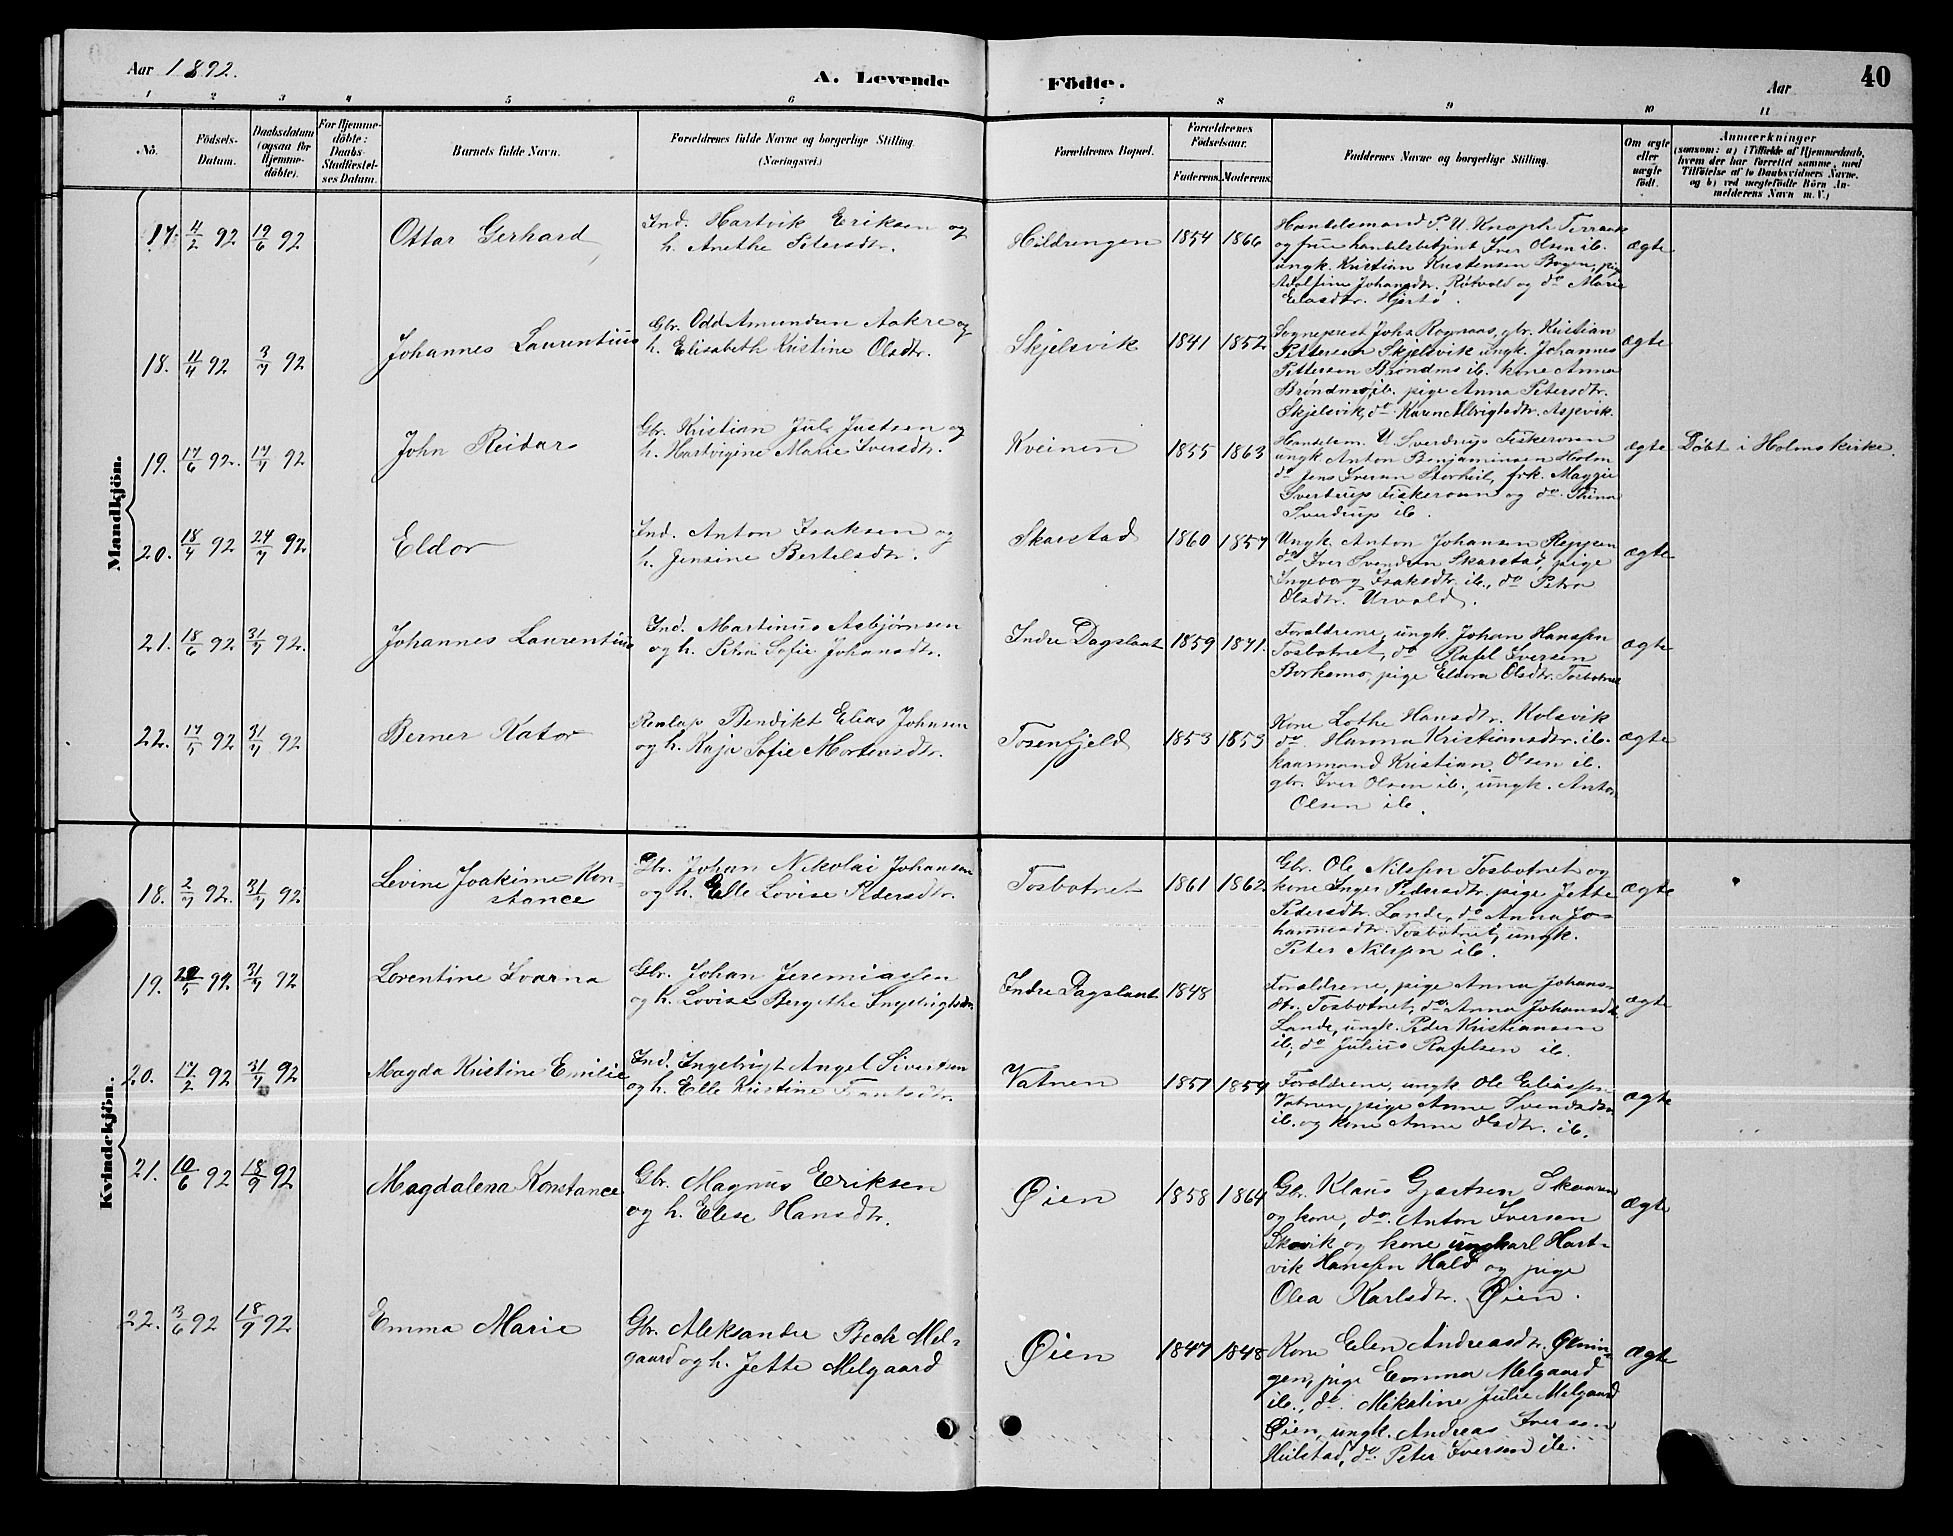 Aar 1892.
A. Levende
Födte.
Aar
40
1 2 3 4 5 6 7 8 9 10 11
No.
Födsels-
Datum.
Daabsdatum
(ogsaa for
Hjemme-
döbte).
For Hjemme-
döbte:
Daabs-
Stadfæstel-
ses Datum.
Barnets fulde Navn.
Forældrenes fulde Navne og borgerlige Stilling.
(Næringsvei.)
Forældrenes Bopæl.
Forældrenes
Födselsaar.
Faderens. Moderens.
Faddernes Navne og borgerlige Stilling.
Om ægte
eller
uægte
födt.
Anmærkninger
(saasom: a) i Tilfælde af Hjemmedaab,
hvem der har forrettet samme, med
Tilföielse af to Daabsvidners Navne,
og b) ved uægtefödte Börn An-
melderens Navn m. V.)
Mandkjön.
17. 4/2 92 19/6 92
Ottar Gerhard
Ind. Hartvik Eriksen og
h. Anethe Petersdtr.
Hildringen 1854 1866
Handelsmand P. U. Knoph Terraak
og frue handelsbetjent Iver Olsen ib.
ungk. Kristian Kristensen Bogen, pige
Adolfine Johansdtr. Røtvold og do Marie
Eliasdtr. Hjortø.
ægte
18. 4/4 92 3/7 92
Johannes Laurentius
Gbr. Odd Amundsen Aakre og
h. Elisabeth Kristine Olsdtr.
Skjelsvik 1841 1852
Sogneprest Johs Rognaas, gbr. Kristian
Pettersen Skjelsvik ungk. Johannes
Pettersen Brøndmo ib. kone Anna
Brøndmo ib. pige Anna Petersdtr.
Skjelsvik, do Karen Albrigtsdtr. Aspevik.
ægte
19. 17/6 92. 17/7 92
John Reidar
Gbr. Kristian Juls Justsen og
h. Hartvigine Marie Iversdtr.
Kveinen 1855 1863
Handelsm. U. Sverdrup Fiskerosen
ungk Anton Benjaminsen Holm
do Jens Iversen Storheil, frk. Maggie
Sverdrup Fiskerosen og do Thina
Sverdrup ib.
ægte
Døbt i Holms kirke.
20. 18/4 92 24/7 92.
Eldor
Ind. Anton Isaksen og
h. Jensine Bertelsdtr.
Skarstad 1860 1857
Ungk. Anton Johansen Reppen
do Iver Svendsen Skarstad, pige
Ingeborg Isaksdtr. ib., do Petra
Olsdtr. Urvold.
ægte
21. 18/6 92 31/7 92.
Johannes Laurentius
Ind. Martinus Asbjørnsen
og h. Petra Sofie Johansdtr.
Indre Dagslaat 1859 1841.
Forældrene, ungk. Johan Hanssen
Tosbotnet, do Rafel Iversen
Borkamo, pige Eldora Olsdtr. Tosbotnet
ægte
22. 17/5 92 31/7 92
Berner Kator
Renlap Bendikt Elias Johnsen
og h. Kaja Sofie Mortensdtr.
Tosenfjeld 1853 1853
Kone Lothe Hansdtr. Kolsvik
do. Hanna Kristiansdtr. ib.
kaarmand Kristian Olsen ib.
gbr. Iver Olsen ib., ungk. Anton
Olsen ib.
ægte
Kvindekjön.
18. 2/7 92. 31/7 92
Levine Joakime Kon-
stance
Gbr. Johan Nikolai Johansen
og h. Elle Lovise Petersdtr.
Tosbotnet 1861 1862.
Gbr. Ole Nilssen Tosbotnet og
kone Inger Pedersdtr. pige Jette
Pedersdtr. Lande, do Anna Jo-
hannesdtr. Tosbotnet, ungk.
Peter Nilssen ib.
ægte
19. 20/5 92. 31/7 92
Lorentine Ivarna
Gbr. Johan Jeremiassen
og h. Lovise Bergithe Ingebrigtsdtr.
Indre Dagslaat 1848
Forældrene, pige Anna Johans-
dtr. Tosbotnet, do. Anna Johansdtr.
Lande, ungk. Peder Kristiansen
ib., do Julius Rafelsen ib.
ægte
20. 17/2 92 31/7 92
Magda Kristine Emilie
Ind. Ingebrigt Angel Sivertsen
og h. Elle Kristine Frantsdtr.
Vatnen 1851 1859
Forældrene, ungk. Ole Eliassen
Vatnen, pige Anne Svendsdtr.
ib. og kone Anne Olsdtr. ib.
ægte
21. 10/6 92 18/9 92
Magdalena Konstance
Gbr. Magnus Eriksen
og h. Elise Hansdtr.
Øien 1858 1864
Gbr. Klaus Gjertsen Skaaren
og kone, do. Anton Iversen
Skavik og kone ungkarl Hart-
vik Hanssen Hald og pige
Olea Karlsdtr. Øien.
ægte
22. 3/6 92 18/9 92
Emma Marie
Gbr. Aleksander Bech Mel-
gaard og h. Jette Melgaard
Øien 1847 1848
Kone Elen Andreasdtr. Øinin-
gen, pige Emma Melgaard
ib., do. Mikaline Julie Melgaard
Øien, ungk. Andreas Iversen
Heilstad, do. Peter Iversen ib.
ægte